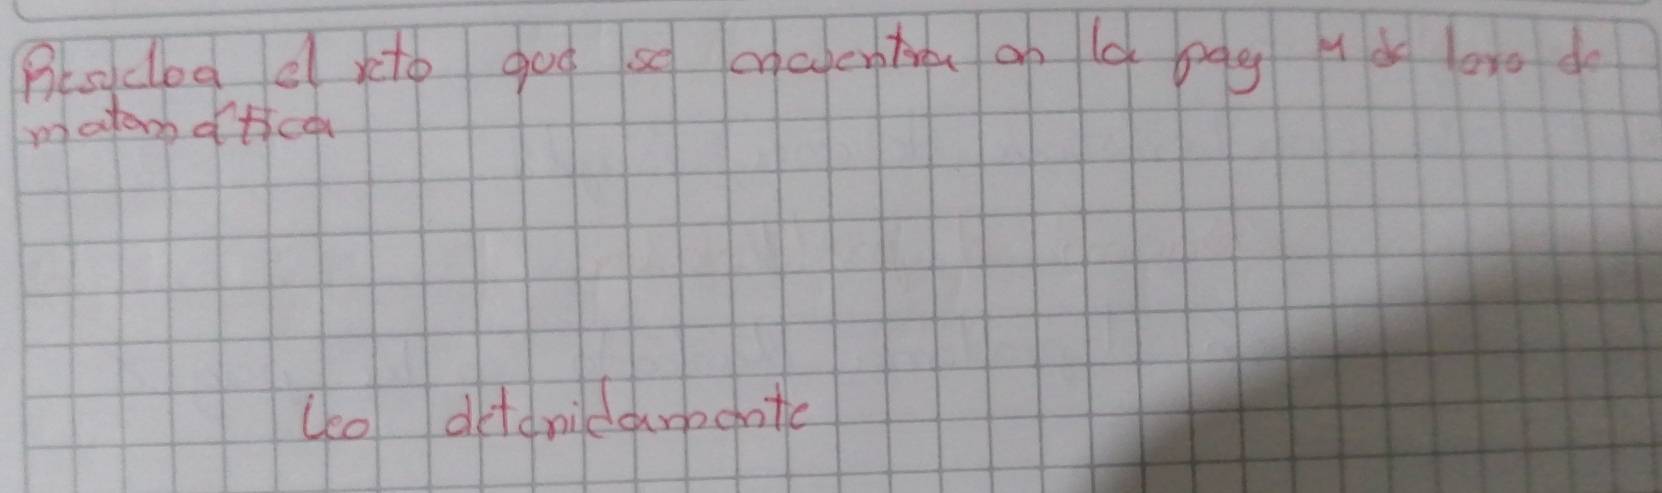 Resuelva el reto que se encuentra en la pag de loro de
matematica
Leo detenidamente